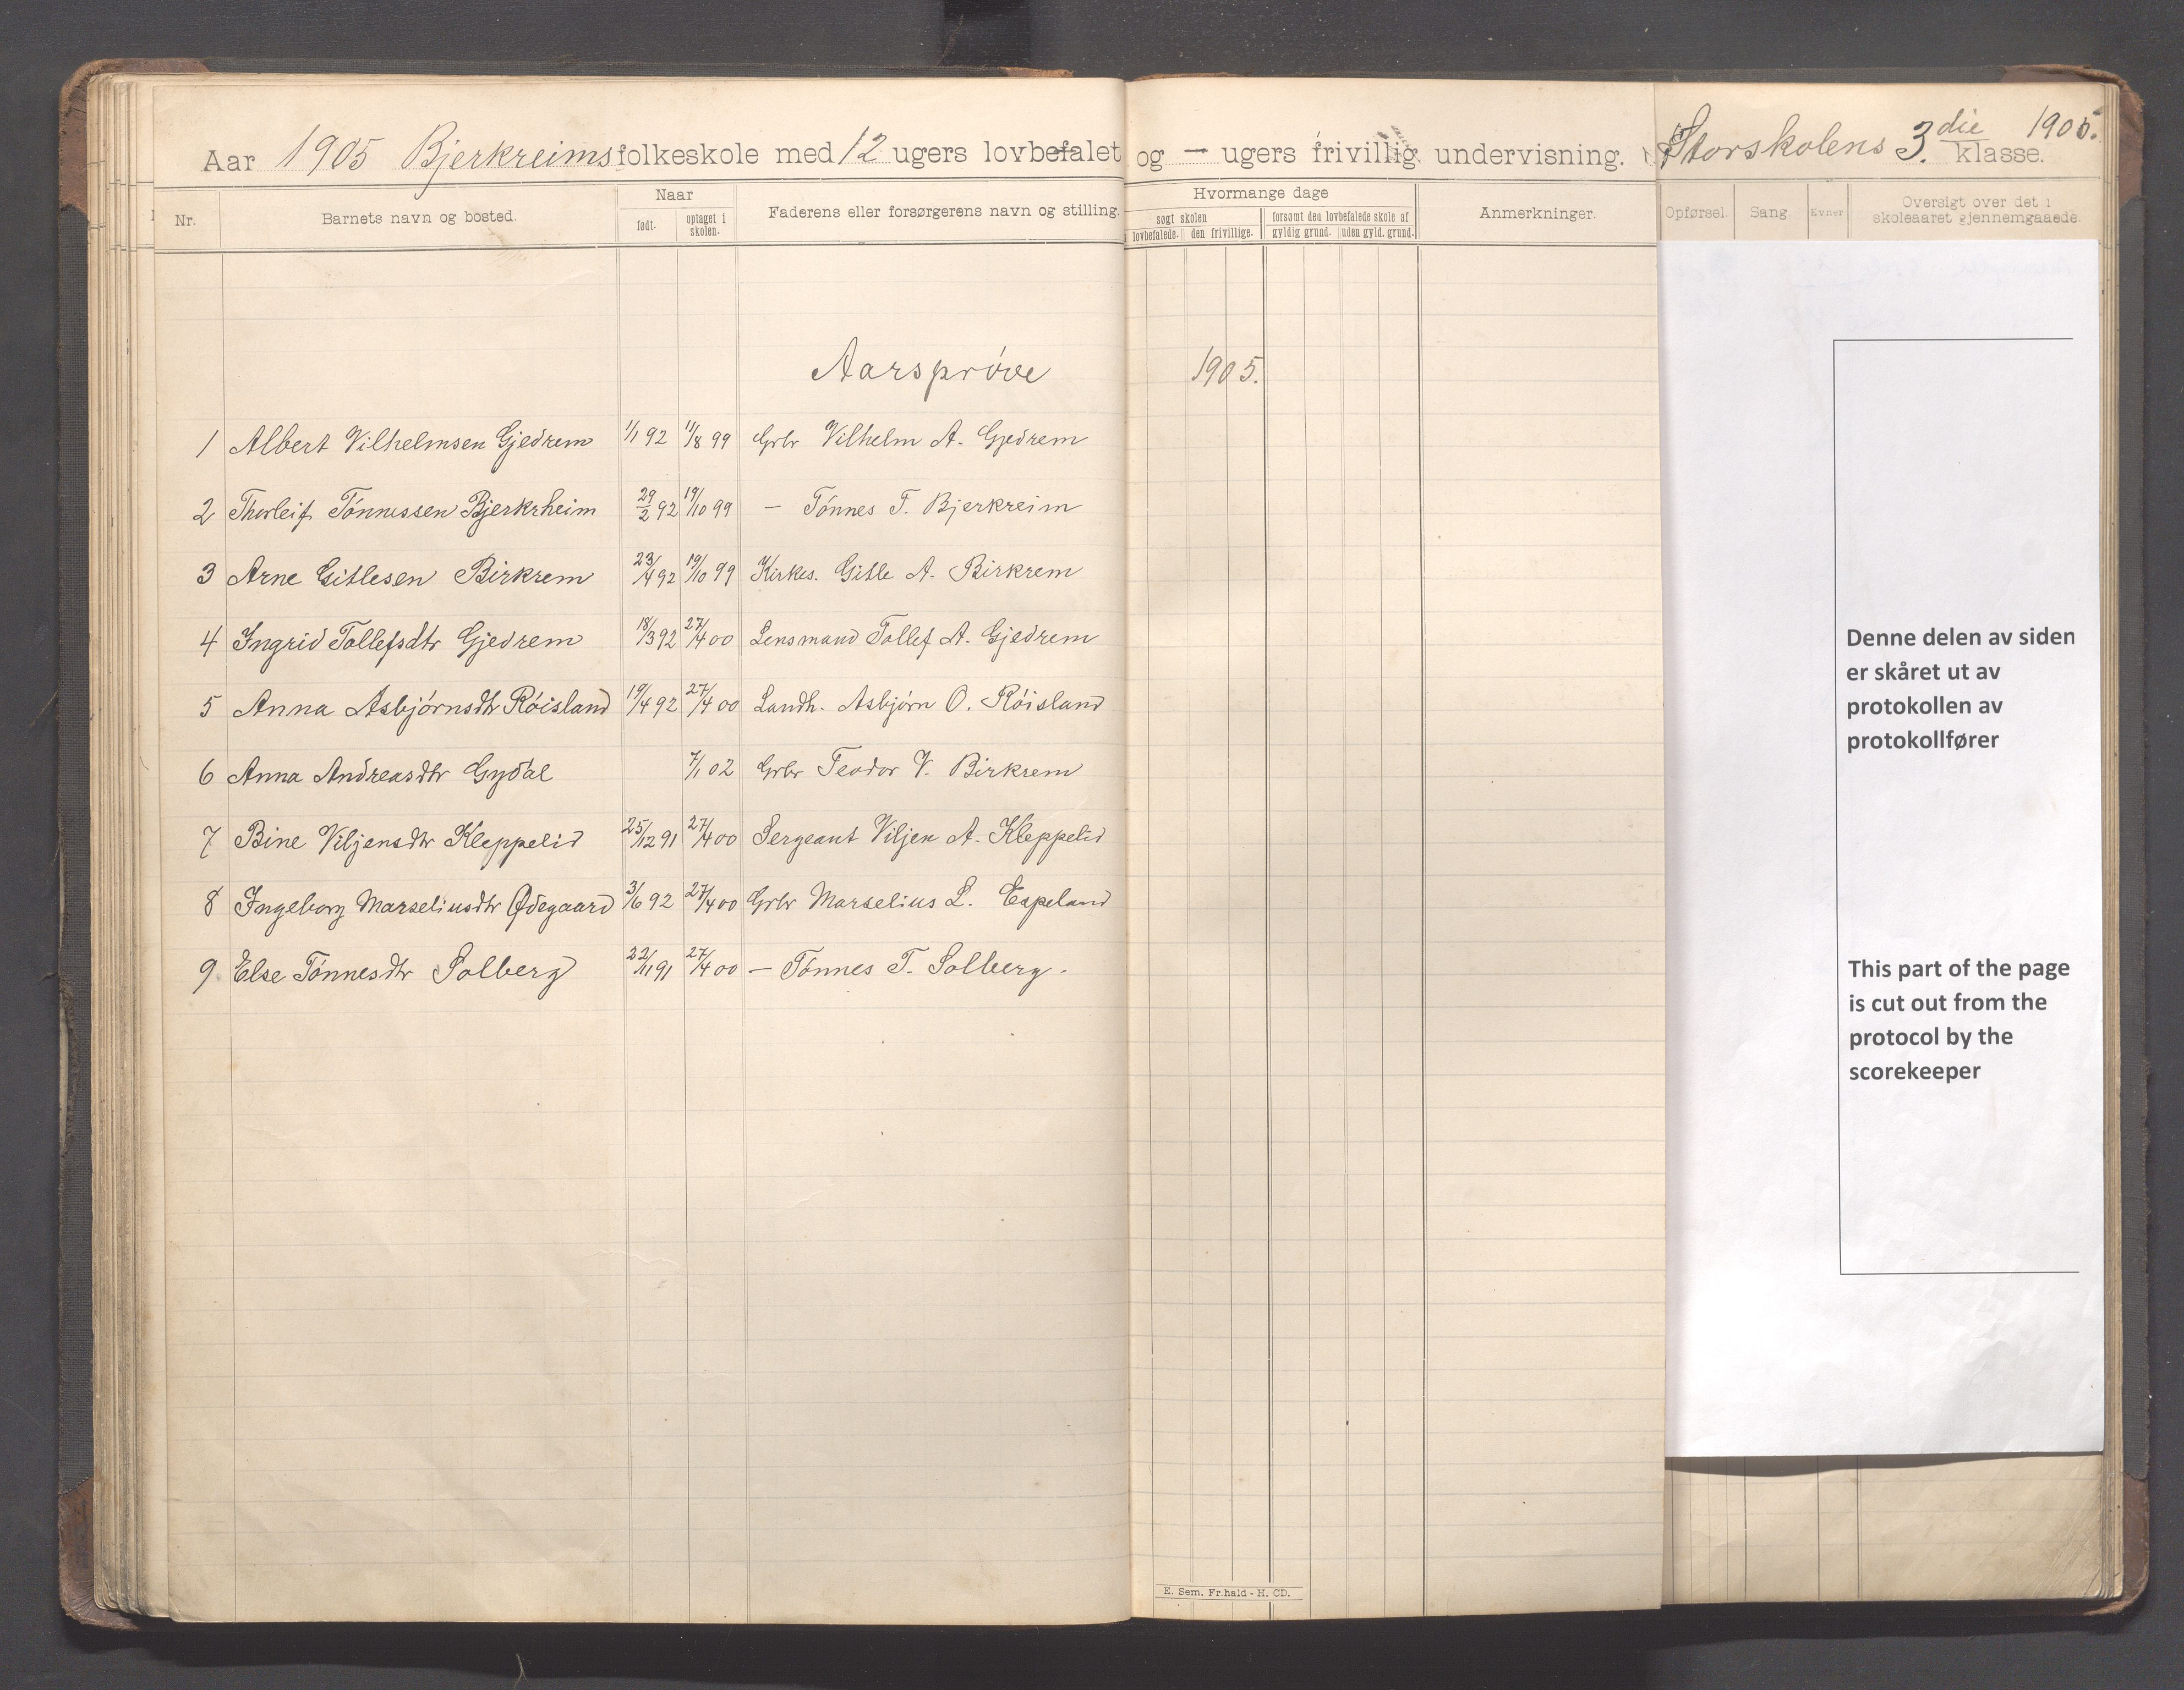 Aar 1905 Bjerkreims folkeskole med 12 ugers lovbefalet og — ugers frivillig undervisning. Storskolens 3. die klasse. 1905.
Nr. Barnets navn og bosted. Naar født. optaget i skolen. Faderens eller forsørgerens navn og stilling. Hvormange dage søgt skolen lovbefalede. den frivillige. forsømt den lovbefalede skole af gyldig grund. uden gyld. grund. Anmerkninger. Opførsel. Sang. Evner Oversigt over det i skoleaaret gjennemgaaede.
Aarsprøve 1905.
1 Albert Vilhelmsen Gjedrem 1/1 92 11/8 99 Grbr Vilhelm A. Gjedrem
2 Thorleif Tønnessen Bjerkrheim 29/2 92 19/10 99 — Tønnes T. Bjerkreim
3 Arne Gitlesen Birkrem 23/4 92 19/10 99 Kirkes. Gitle A. Birkrem
4 Ingrid Tollefsdtr Gjedrem 18/3 92 27/4 00 Lensmand Tollef A. Gjedrem
5 Anna Asbjørnsdtr Røisland 19/4 92 27/4 00 Landh. Asbjørn O. Røisland
6 Anna Andreasdtr Gydal 7/1 02 Grbr Teodor V. Birkrem
7 Bine Viljensdtr Kleppelid 25/12 91 27/4 00 Sergeant Viljen A. Kleppelid
8 Ingeborg Marseliusdtr Ødegaard 3/6 92 27/4 00 Grbr Marselius L. Espeland
9 Else Tønnesdtr Solberg 22/11 91 27/4 00 — Tønnes T. Solberg.
Denne delen av siden
er skåret ut av
protokollen av
protokollfører
This part of the page
is cut out from the
protocol by the
scorekeeper
E. Sem, Fr.hald - H. CD.